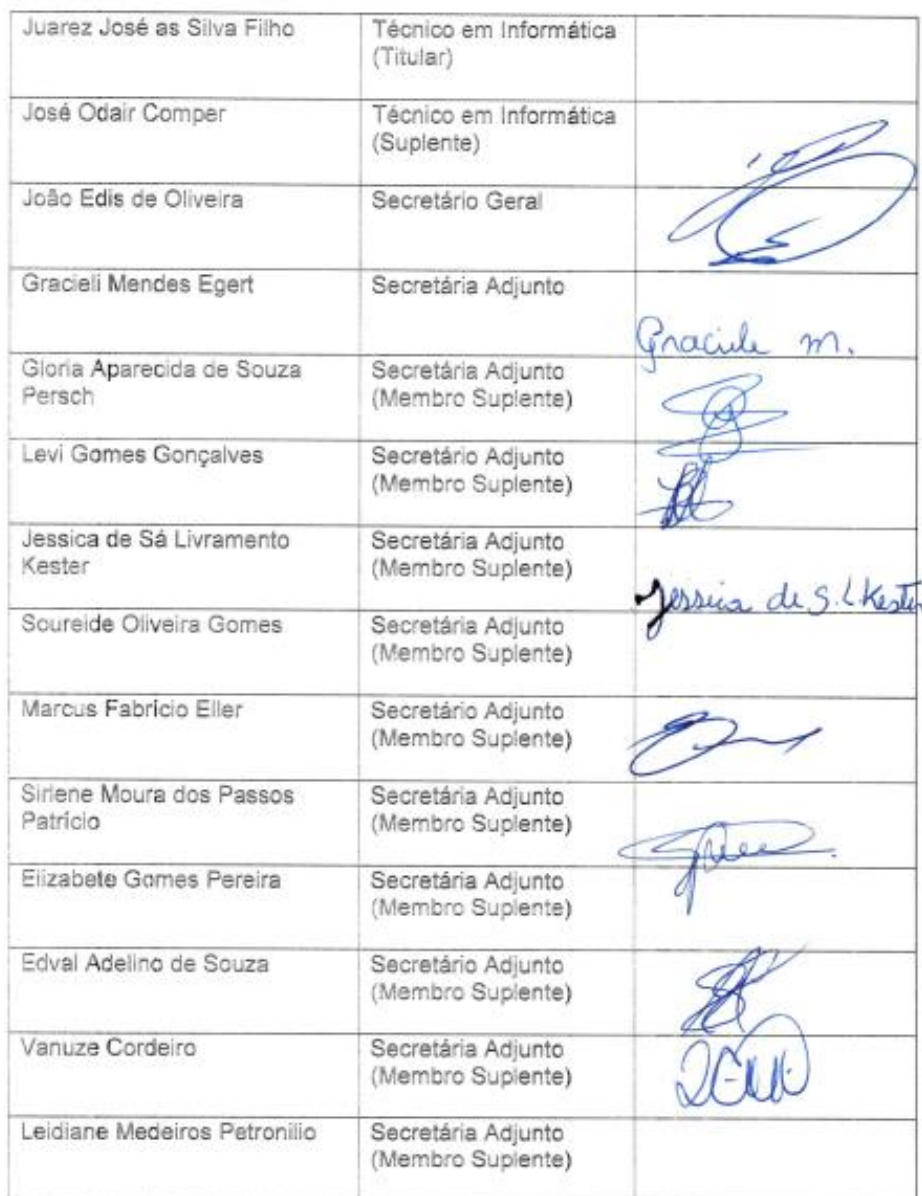 Juarez José as Silva Filho
Técnico em Informática
(Titular)
José Odair Comper
Técnico em Informática
(Suplente)
João Edis de Oliveira
Secretário Geral
Gracieli Mendes Egert
Secretária Adjunto
Graciele m.
Gloria Aparecida de Souza
Persch
Secretária Adjunto
(Membro Suplente)
Levi Gomes Gonçalves
Secretário Adjunto
(Membro Suplente)
Jessica de Sá Livramento
Kester
Secretária Adjunto
(Membro Suplente)
Jessica de S. L Kester
Soureide Oliveira Gomes
Secretária Adjunto
(Membro Suplente)
Marcus Fabricio Eller
Secretário Adjunto
(Membro Suplente)
Sirlene Moura dos Passos
Patrício
Secretária Adjunto
(Membro Suplente)
Elizabete Gomes Pereira
Secretária Adjunto
(Membro Suplente)
Edval Adelino de Souza
Secretário Adjunto
(Membro Suplente)
Vanuze Cordeiro
Secretária Adjunto
(Membro Suplente)
Leidiane Medeiros Petronilio
Secretária Adjunto
(Membro Suplente)